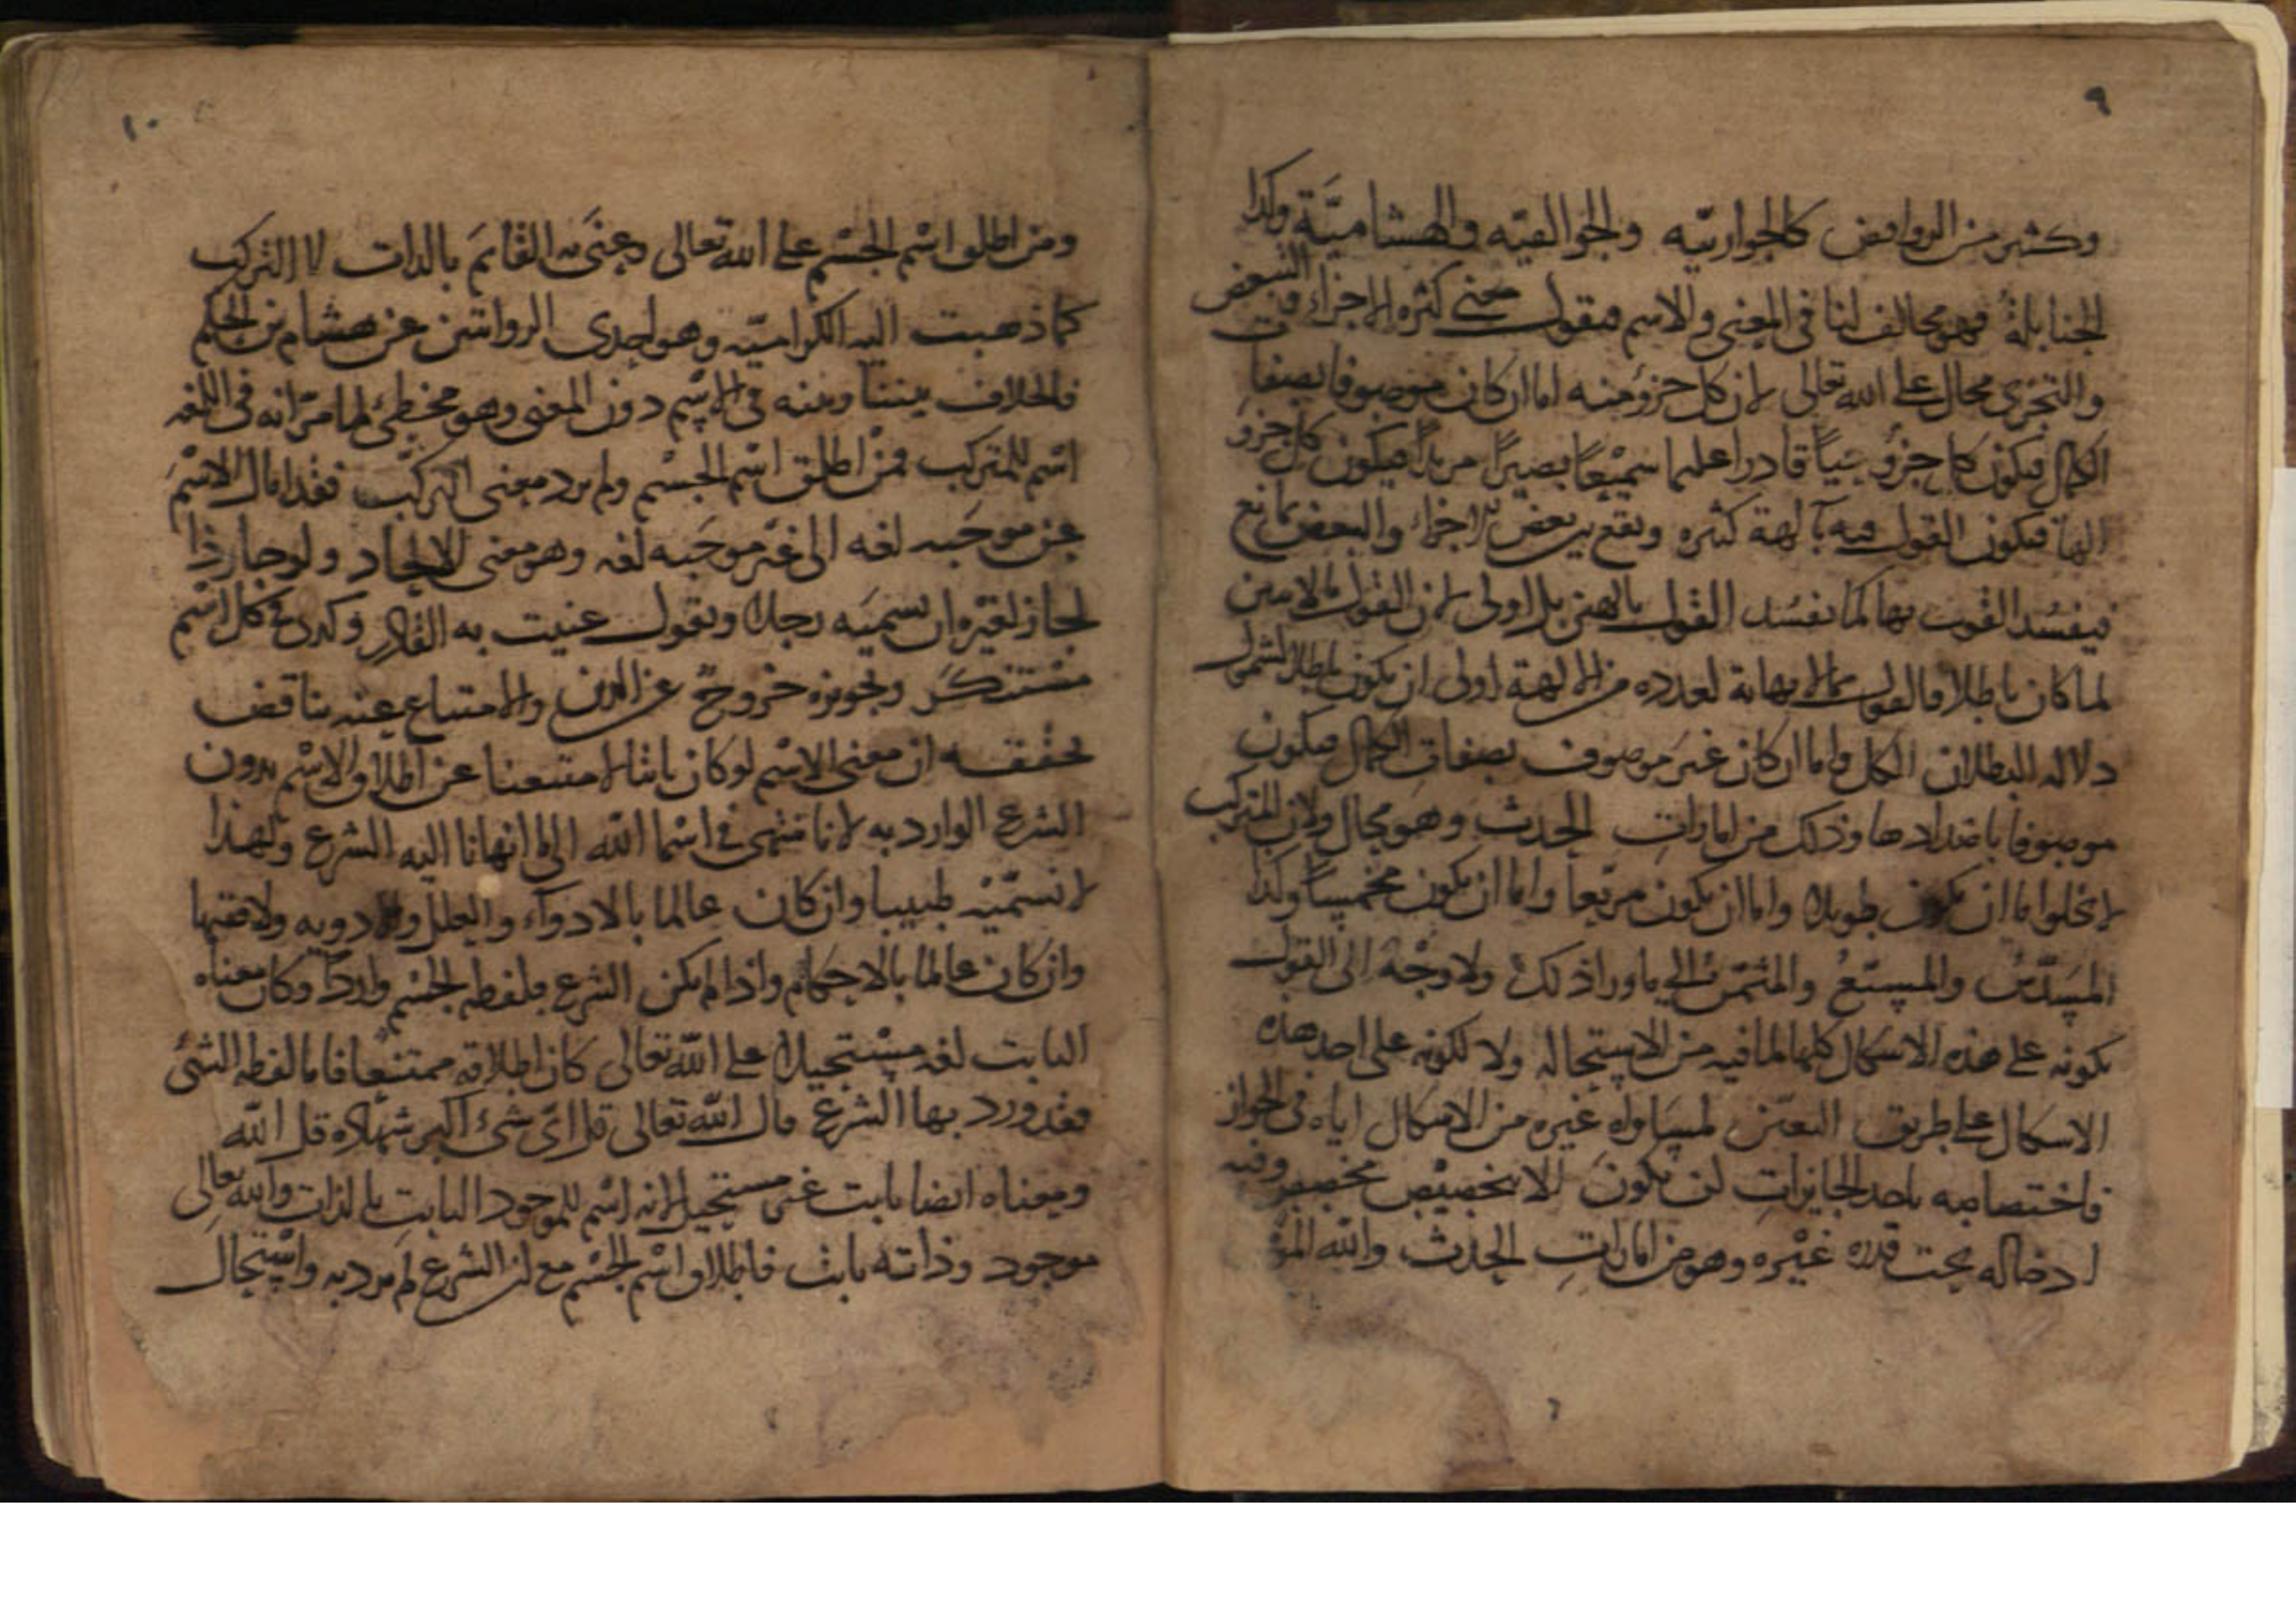 ٩
وكثير من الروافض كالجواربيه والجوالقيه والهشاميّة وكذا
الحنابلة فهو مخالف لنا في المعنى والاسم فنقول معنى كثره الاجزاء والتبعض
والتجزى محال على الله تعالى لان كل جزؤ منه اما ان كان موصوفا بصفات
الكمال فيكون كل جزؤ حيّاً قادرا عليما سميْعاً بصيراً مريداً فيكون كل جزؤ
الهاً فيكون القول فيه بآلهة كثيره ويقع بين بعض الاجزاء والبعض تمانع
فيفسُد القول بها كما يفسُد القول بالهين بل اولى لان القول بالاثنين
لما كان باطلا فالقول بما لا نهاية لعدده من الالهة اولى ان يكون باطلا لشمول
دلاله البطلان الكل واما ان كان غير موصوف بصفات الكمال فيكون
موصوفا باضدادها وذلك من امارات الحدث وهو محال ولان المتركب
لا يخلوا اما ان يكون طويلا واما ان يكون مربّعا واما ان يكون مخمسا وكذا
المسَدّسُ والمسبّعُ والمثمّن الى ما ورا ذلك ولا وجْهَ الى القول
بكونه على هذه الاشكال كلها لما فيه من الاستحاله ولا لكونه على احد هذه
الاشكال على طريق التعيّن لمساواه غيره من الاشكال اياه في الجواز
فاختصاصه باحد الجايزات لن يكون الا بتخصيْص مخصص وفيه
ادخاله تحت قدره غيْره وهو من امارات الحدث والله الموفق
١٠
ومن اطلق اسْم الجسْم على الله تعالى وعنَى به القائمَ بالذات لا التركب
كما ذهبت اليه الكراميّه وهو احدى الروايتين عن هشام بن الحكم
فالخلاف بيننا وبينه في الاسْم دون المعنى وهو مخطئ لما مرّ انه في اللغه
اسْم للمتركب فمن اطلق اسْم الجسْم ولم يرد معنى التركّب فقد امال الاسْم
عن موجَبه لغه الى غيْر موجَبه لغه وهو معنى الالحاد ولو جاز ذا
لجاز لغيْره ان يسميَه رجلا ويقول عنيت به القادر وكذى في كل اسْم
مسْتنكَر وتجويزه خروجٌ عن الدين والامتناع عنه تناقض
تحقْيقه ان معنى الاسْم لو كان ثابتا لامتنعنا عن اطلاق الاسْم بدون
الشرع الوارد به لانا ننتهى في اسْما الله الى ما انهانا اليه الشرع ولهذا
لا نسمّيْه طبيبا وان كان عالما بالادوآء والعلل والادويه ولا فقيها
وان كان عالما بالاحكام واذا لم يكن الشرع بلفظه الجسْم وارداً وكان معناه
الثابت لغه مسْتحيلا على الله تعالى كان اطلاقه ممتنعا فاما لفظه الشئ
فقد ورد بها الشرع قال الله تعالى قل اىّ شئ اكبر شهاده قل الله
ومعناه ايضا ثابت غير مستحيل لانه اسْم للموجود الثابت بالذات والله تعالى
موجود وذاته ثابت فاطلاق اسْم الجسْم مع ان الشرع لم يرد به واسْتحال